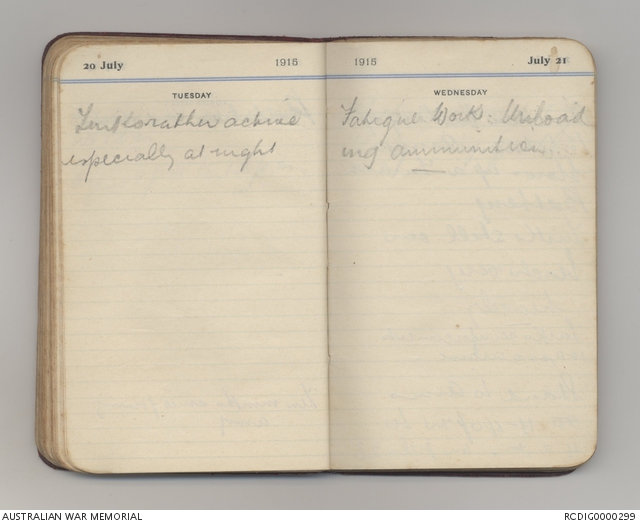 20 July 1915
TUESDAY
Turks rather active
especially at night
1915 July 21
WEDNESDAY
Fatigue Work. Unload
ing ammunition
AUSTRALIAN WAR MEMORIAL
RCDIG0000299